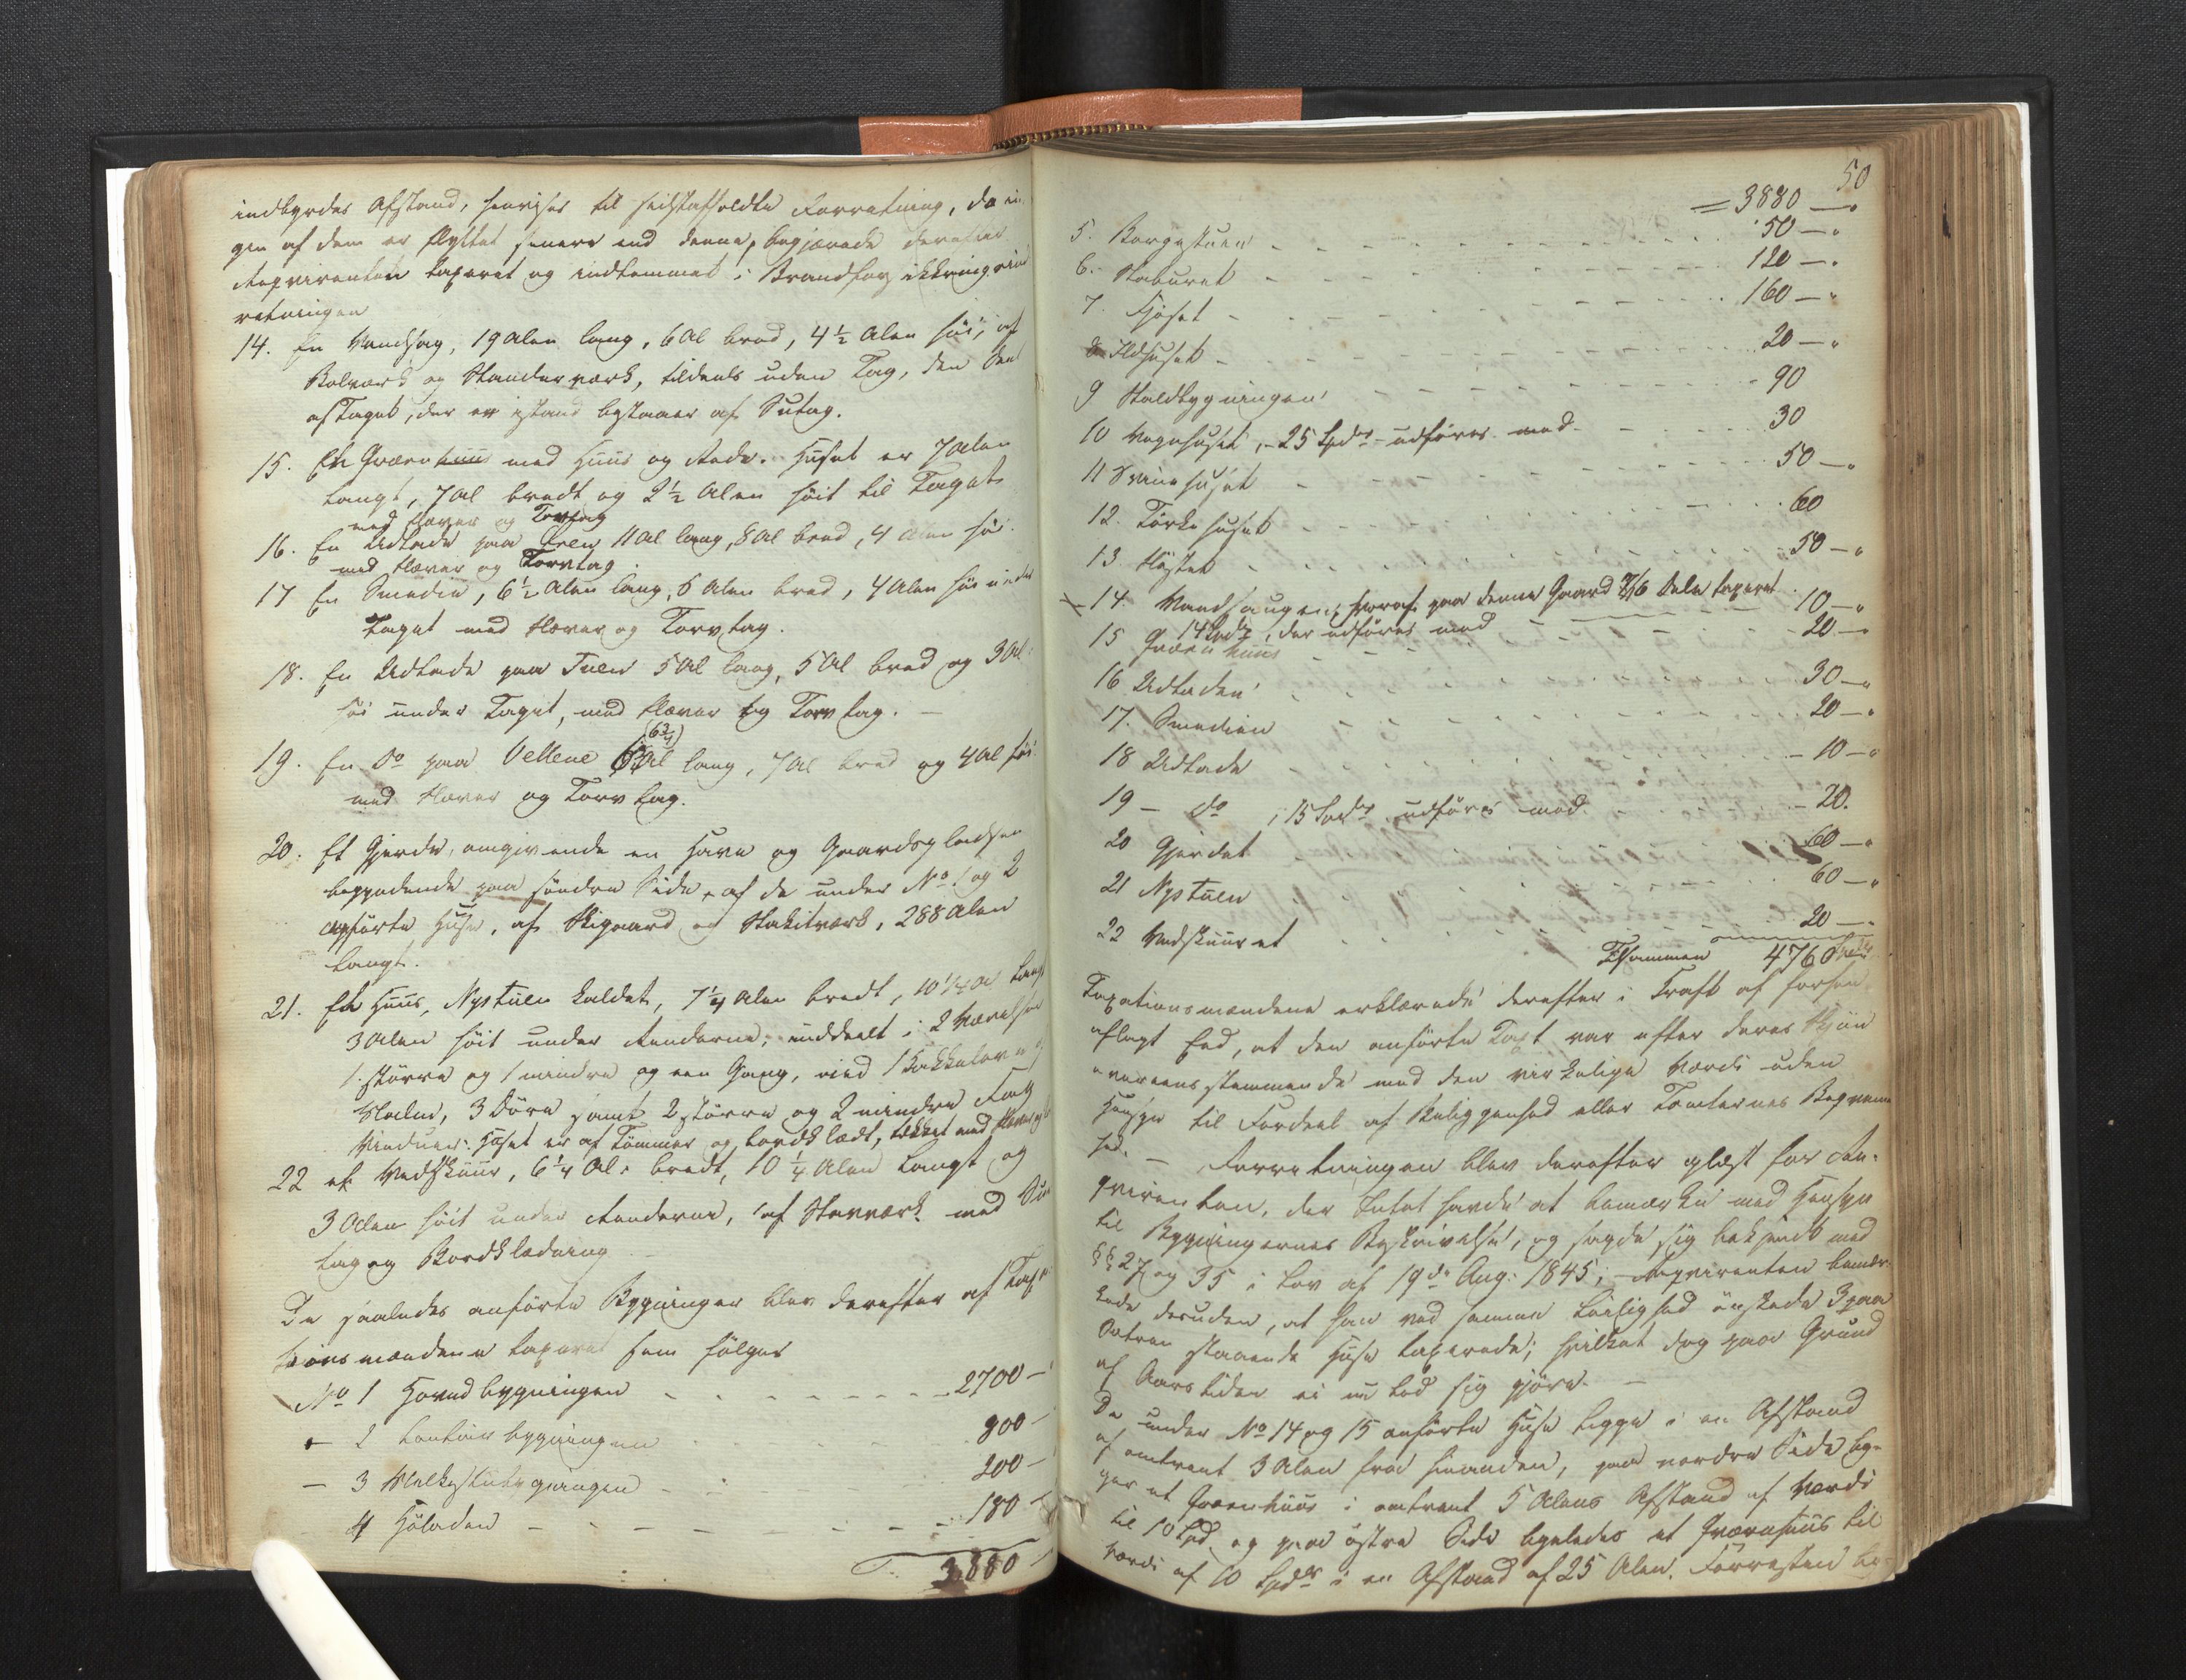 indbyrdes Afstand, henvises til sidstafholdte Forretning, da in¬
gen af dem er flyttet senere end denne, begjærede derefter
Reqvirenten taxeret og indlemmet i Brandforsikkringsind
retningen
14. En Vandsag, 19 Alen lang, 6 Al bred, 4½ Alen høi, af
Bolværk og Standerværk, tildeels uden Tag, den Deel
af Taget, der er istand bestaaer af Sutag.
15. Et Qværnhuus med Huus og Rede. Huset er 7 Alen
langt, 7 Al bredt og 2½ Alen høit til Taget
med Næver og Torvtag
16. En Udlade paa 11 Al lang, 8 Al bred, 4 Alen høi
med Næver og Torvtag
17 En Smedie, 6½ Alen lang, 6 Alen bred, 4 Alen høi under
Taget med Næver og Torvtag.
18. En Udlade paa 5 Al lang, 5 Al bred og 3 Al
høi under Taget, med Næver og Torvtag. —
19. En Do paa Vellene (6¾) Al lang, 7 Al bred og 4 Al høi
med Næver og Torvtag.
20. Et Gjerde, omgivende en Have og Gaardspladsen
beggendende paa søndre Side af de under No 1 og 2
opførte Huse, af Skigaard og Stakitværk, 288 Alen
langt.
21. Et Huus, Nystuen kaldet, 7¼ Alen bredt, 10¼ Al langt
3 Alen høit under Renderne, inddeelt i 2 Værelser
1 større og 1 mindre og een Gang, med 1 Kakkelovn
3 Døre samt 2 større og 2 mindre Fag
Vinduer. Huset er af Tømmer og bordklædt, tækket med
22 et Vedskuur, 6¼ Al. bredt, 10¼ Alen langt og
3 Alen høit under Renderne, af Stavværk med Su
tag og Bordklædning
De saaledes anførte Bygninger blev derefter af Taxa
tionsmændene taxeret som følger
No 1 Hovedbygningen 2700 —
— 2 bygningen 800 —
— 3 200 —
4 Høladen 180 —
T. 3880 —
50
= 3880 —
5. Borgestuen 50 —
6. Staburet 120 —
7. Fjøset 160 —
8 Ildhuset 20 —
9 Staldbygningen 90
10 Vognhuset, 25 Spdr udføres med 30
11 Svinehuset 50 —
12. Tørkehuset 60
13. 50 —
14 Vandsaugen, hvoraf paa denne Gaard 7/16 Dele taxeret
14 Spdr, der udføres med 10 —
15 Qværnhuus 20 —
16 Udladen 30 —
17. Smedien 20 —
18 Udlade 10 —
19 — do, 15 Spdr udføres med 20.
20 Gjerdet 60 —
21 Nystuen 60 —
22 Vedskuuret 20 —
Tilsammen 4760 Spdr
Taxationsmændene erklærede derefter i Kraft af forhen
aflagt Eed, at den anførte Taxt var efter deres Skjøn
overeensstemmende med den virkelige Værdi uden
Hensyn til Fordeel af Beliggenhed eller Tomternes Beqvem
hed. — Forretningen blev derefter oplæst for Re¬
qvirenten, der Intet havde at bemærke med Hensyn
til Bygningernes Beskrivelse, og sagde sig bekjendt med
§§ 27 og 35 i Lov af 19de Aug: 1845; Reqvirenten bemær¬
kede desuden, at han ved samme Leilighed ønskede 3 paa
Sætren staaende Huse taxerede; hvilket dog paa Grund
af Aarstiden ei nu lod sig gjøre. —
De under No 14 og 15 anførte Huse ligge i en Afstand
af omtrent 3 Alen fra hinanden, paa nordre Side lig¬
ger et Qværnhuus i omtrent 5 Alens Afstand af Værdi
til 10 Spd. og paa østre Side ligeledes et Qværnhuus til
Værdi af 10 Spdlr i en Afstand af 25 Alen. Forresten be